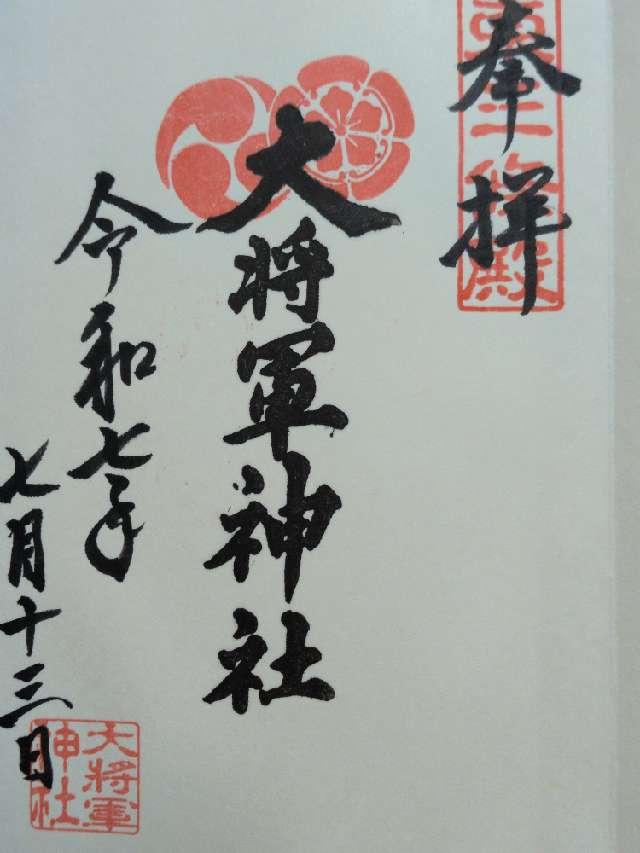 奉拝
大将軍神社
令和七年
七月十三日
大将軍
神社